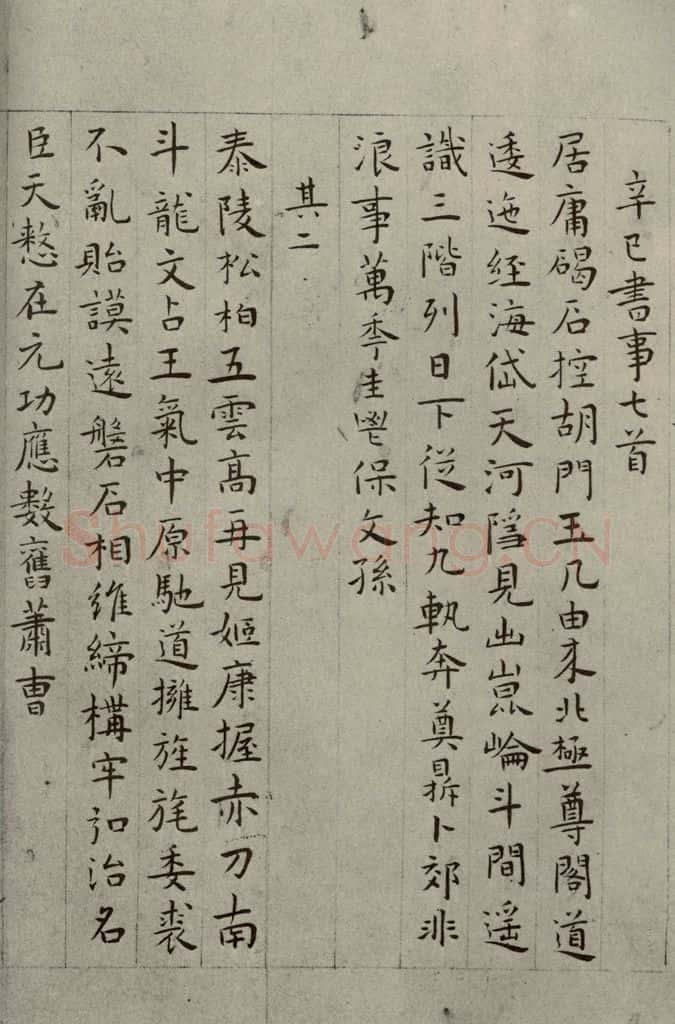 辛巳書事七首
居庸碣石控胡門玉几由來北極尊閣道
逶迤經海岱天河隱見出崑崘斗間遥
識三階列日下從知九軌奔奠晷拆卜郊非
浪事萬季圭鬯保文孫
其二
泰陵松柏五雲高再見姬康握赤刀南
斗龍文占王氣中原馳道擁旌旄委裘
不亂貽謨遠磐石相維締構牢弘治名
臣天憖在元功應數舊蕭曹
Shufawang.CN